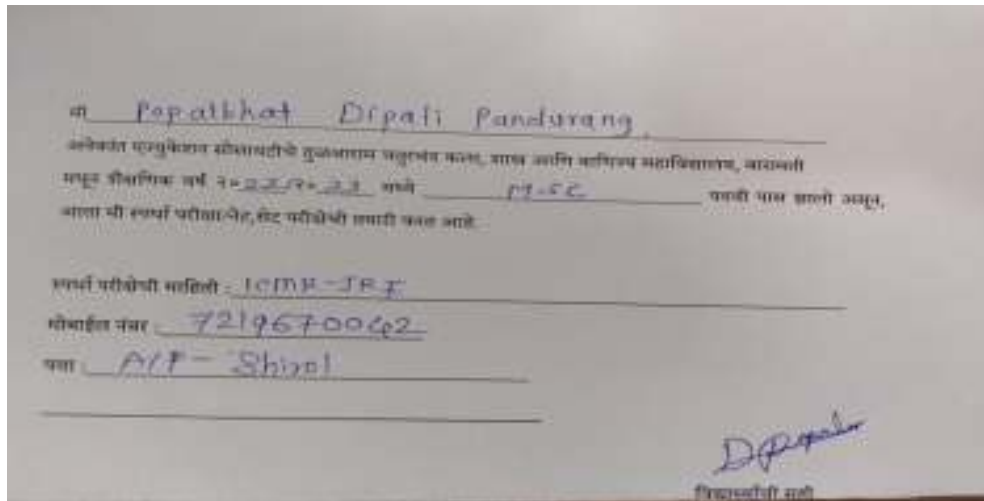 मी Popatbhat Dipali Pandurang.
अनेकांत एज्युकेशन सोसायटीचे तुळजाराम चतुरचंद कला, शास्त्र आणि वाणिज्य महाविद्यालय, बारामती
मधून शैक्षणिक वर्ष २०22/२०23 मध्ये M.SC पदवी पास झालो असून,
आता मी स्पर्धा परीक्षा/नेट,सेट परीक्षेची तयारी करत आहे.
स्पर्धा परीक्षेची माहिती : ICMR-JRF
मोबाईल नंबर : 7219670042
पत्ता : A/P- Shirol
विद्यार्थ्याची सही